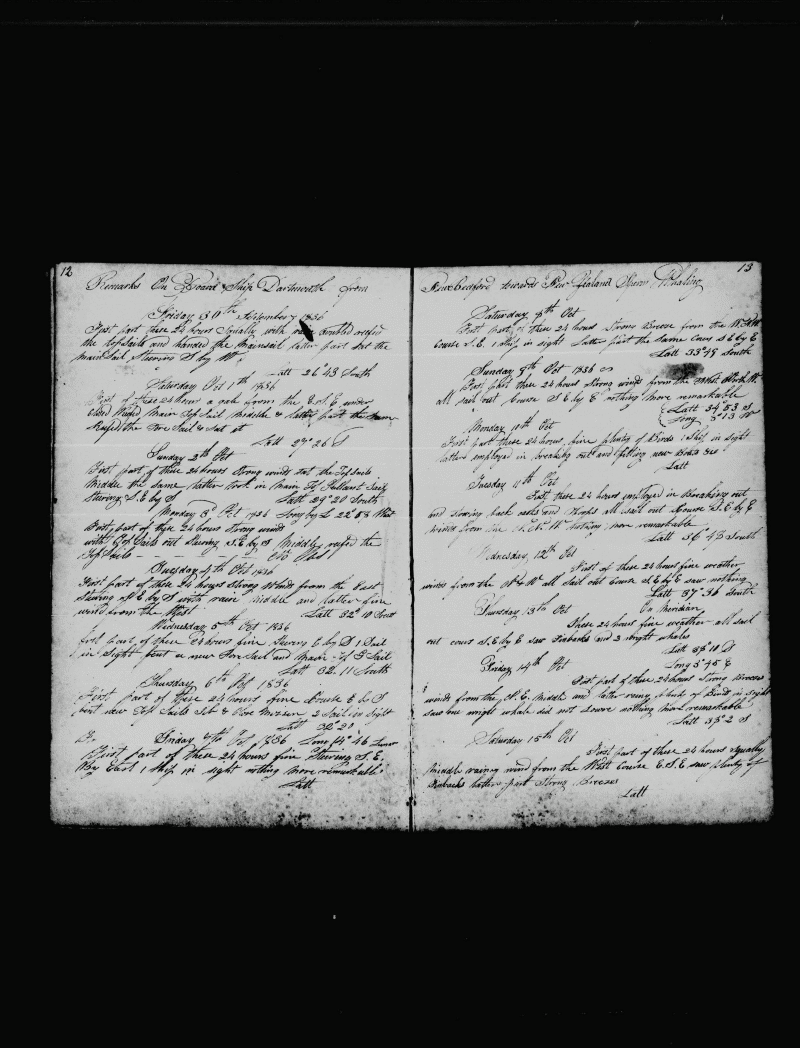 12
Remarks On Board Ship Dartmouth from
Friday 30th September 1836
First part these 24 hours Squally with rain doubled reefed
the topsails and handed the mainsail latter part set the
mainsail Steering S by W
Latt 26 43 South
Saturday Oct 1th 1836
First of these 24 hours a gale from the E.S.E. under
Close Reefed Main Top Sail middle & latter part the same
Reefed the Fore Sail & set it
Latt 27° 26 S
Sunday 2th Oct
First part of these 24 hours strong winds set the TopSails
Middle the same latter took in Main Top Gallant Sail
Steering S.E by S Latt 29° 20 South
Monday 3th Oct 1836 Long by L 22° 53 West
First part of these 24 hours Strong wind
with Top Sails out Steering S.E by S Middle reefed the
Top Sails
Tuesday 4th Oct 1836
First part of these 24 hours Strong Winds from the East
Steering S E by S with rain middle and latter fine
wind from the West Latt 32° 10 South
Wednesday 5th Oct 1836
first part of these 24 hours fine Steering E by S 1 Sail
in Sight bent a new Fore Sail and Main Top G Sail
Latt 32. 11 South
Thursday 6th Oct 1836
First part of these 24 hours fine Course E by S
bent new Top Sails Jib & Fore Mizzen 2 Sail in Sight
Latt 32° 20
Friday 7th Oct 1836 Long 14° 46
First part of these 24 hours fine Steering S.E.
By East 1 Ship in sight nothing more remarkable
Latt
13
New Bedford towards New Zealand Sperm Whaling
Saturday 8th Oct
First part of these 24 hours Strong Breeze from the
Course S.E. 1 Ship in sight Latter part the same Cours S E by E
Latt 33° 48 South
Sunday 9th Oct 1836
First part these 24 hours strong winds from the West North W.
all sail out Course S E by E nothing more remarkable
Latt 34° 53 S
Long 8° 13 W
Monday 10th Oct
First part these 24 hours fine plenty of Birds 1 Ship in sight
latter employed in breaking out and fitting new Boat &c
Latt
Tuesday 11th Oct
First these 24 hours employed in Breaking out
and stowing back casks and Hoops all sail out Course S.E by E
winds from the N.N.W. Nothing more remarkable
Latt 36° 43 South
Wednesday 12th Oct
First of these 24 hours fine weather
winds from the all sail out Course S E by E saw nothing
Latt 37° 36 South
On Meridian
Thursday 13th Oct
These 24 hours fine weather all sail
out cours S.E by E saw Finbacks and 2 wright whales
Latt 38° 11 S
Long 5° 45 E
Friday 14th Oct
First part of these 24 hours Strong Breeze
winds from the N.E. Middle and latter rainy plenty of Birds in sight
saw one wright whale did not Lower nothing more remarkable
Latt 39° 2 S
Saturday 15th Oct
First part of these 24 hours squally
Middle rainey wind from the West Course E.S.E saw plenty of
Finbacks latter part Strong Breezes
Latt